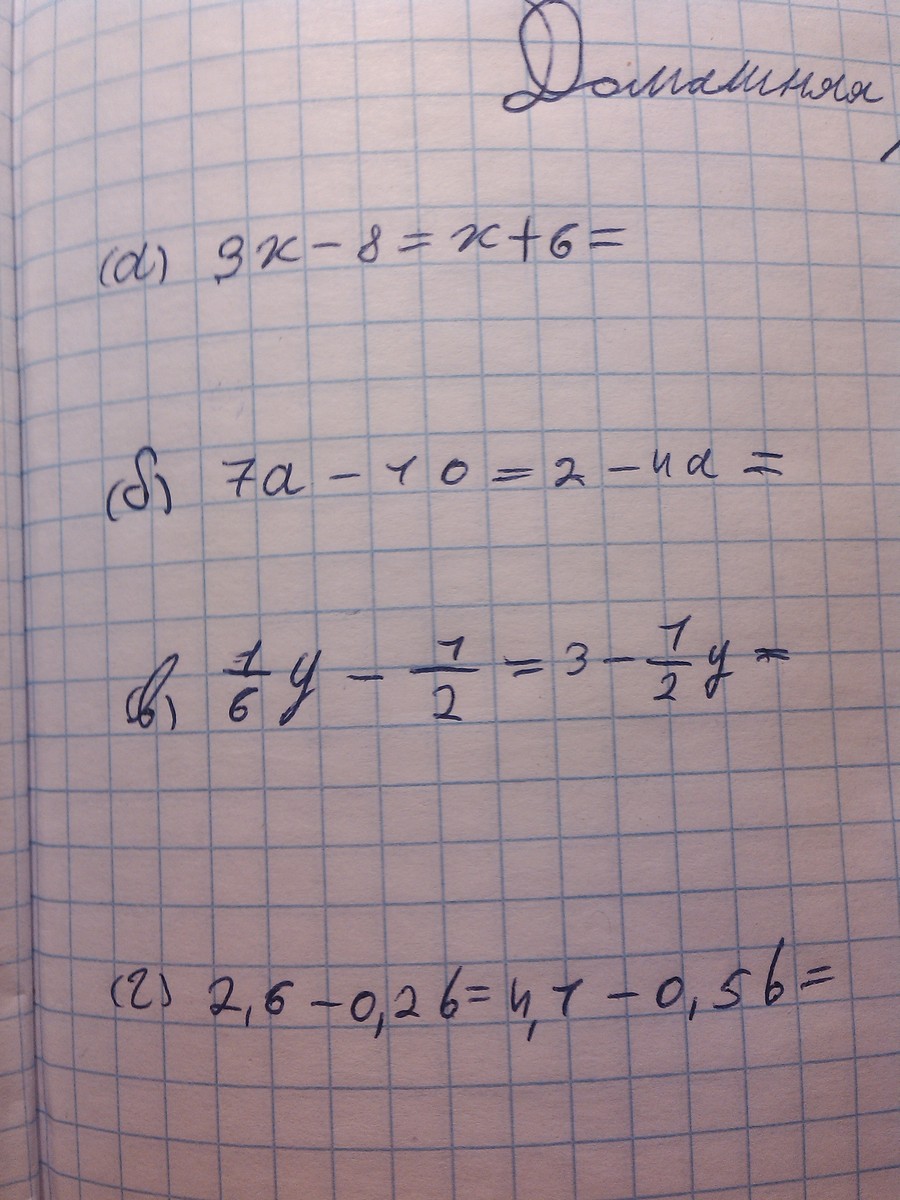 Домашняя
(а) 3x - 8 = x + 6 =
(б) 7a - 10 = 2 - 4a =
(в) 1/6 y - 1/2 = 3 - 1/2 y =
(г) 2,6 - 0,2b = 4,1 - 0,5b =